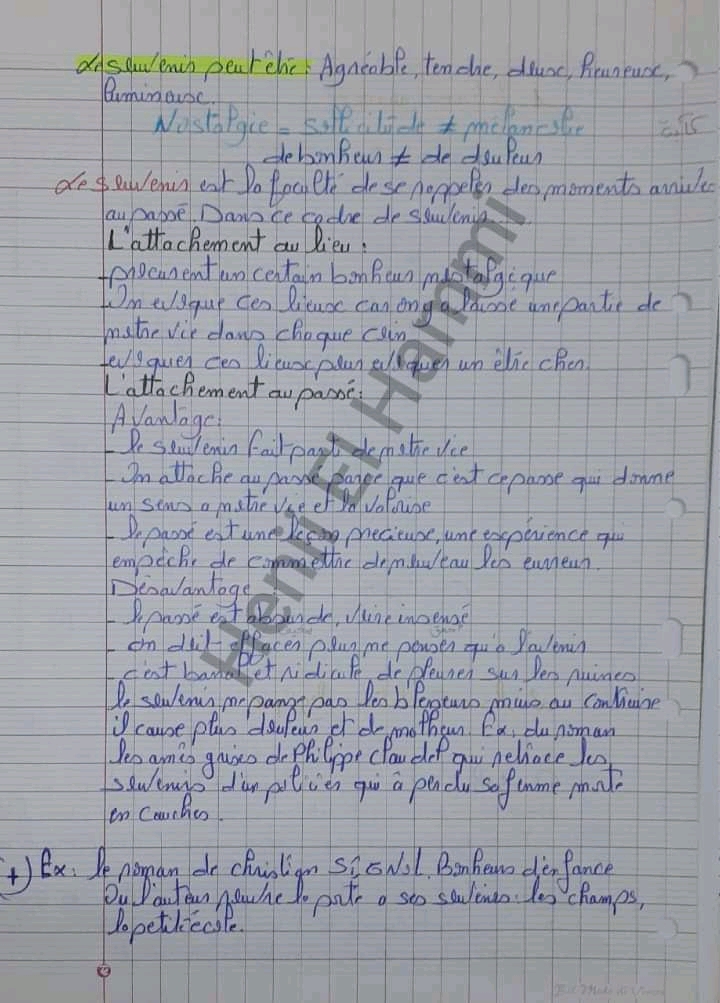 Le souvenir peut être : Agréable, tendre, doux, heureuse,
luminause.
Nostalgie = sollicitude ≠ mélancolie
de bonheur ≠ de douleur
Le souvenir est la faculté de se rappeler des moments arrivés
au passé. Dans ce cadre de souvenir......
L'attachement au lieu :
- procurent un certain bonheur nostalgique
- On evoque ces lieux car on y a laissé une partie de
notre vie dans chaque coin
- evoquer ces lieux pour evoquer un être cher.
L'attachement au passé :
Avantage :
- le souvenir fait parti de notre vie
- On attache au passé parce que c'est ce passe qui donne
un sens a notre vie et la valorise
- le passé est une leçon precieuse, une expérience qui
empêche de commettre de nouveau les erreurs.
Désavantage
- le passé est absurde, voire insensé
- on doit effacer pour ne penser qu'à l'avenir
- c'est banal et ridicule de pleurer sur les ruines
le souvenir ne panse pas les blesseurs mais au contraire
il cause plus douleur et de malheur. Ex, du roman
les amis grises de Philippe claudel qui retrace les
souvenirs d'un policier qui à perdu sa femme morte
en couches.
(+) Ex : le roman de christian SIGNOL. Bonheur d'enfance
Ou l'auteur ouvre la porte a ses souvenirs : les champs,
la petite école.
Henii El Hammi